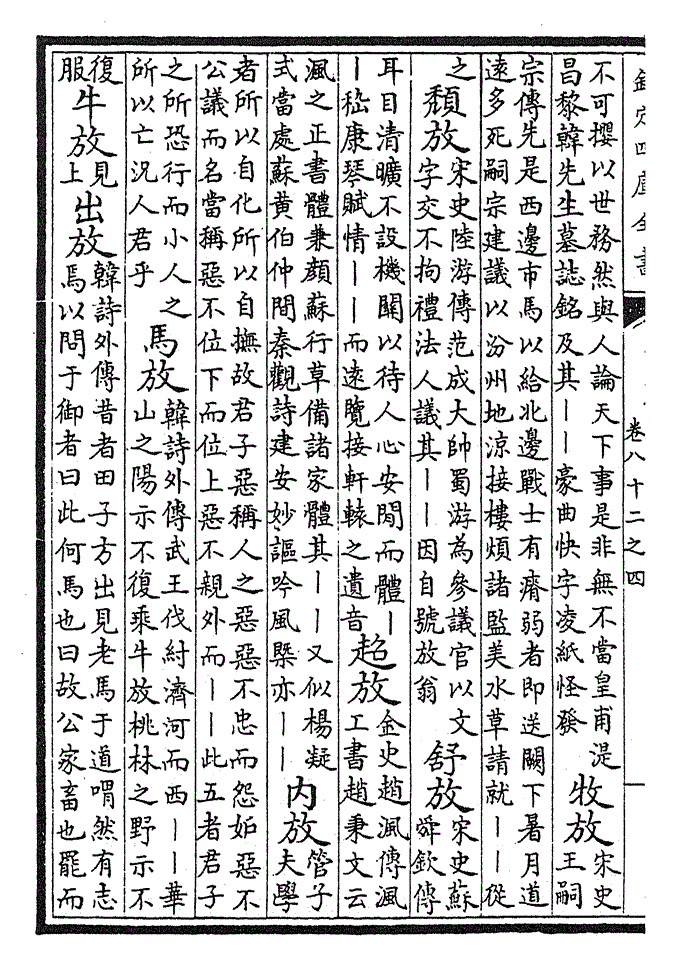 欽定四庫全書 卷八十二之四
不可攖以世務然與人論天下事是非無不當皇甫湜
昌黎韓先生墓誌銘及其||豪曲快字凌紙怪發
牧放
宋史
王嗣
宗傳先是西邊市馬以給北邊戰士有瘠弱者即送闕下暑月道
逺多死嗣宗建議以汾州地涼接樓煩諸監美水草請就||從
之
頽放
宋史陸游傳范成大帥蜀游為參議官以文
字交不拘禮法人議其||因自號放翁
舒放
宋史蘇
舜欽傳
耳目清曠不設機闗以待人心安閒而體|
|嵇康琴賦情||而逺覽接軒轅之遺音
超放
金史趙渢傳渢
工書趙秉文云
渢之正書體兼顔蘇行草備諸家體其||又似楊凝
式當處蘇黃伯仲間秦觀詩建安妙謳吟風槩亦||
内放
管子
夫學
者所以自化所以自撫故君子惡稱人之惡惡不忠而怨妬惡不
公議而名當稱惡不位下而位上惡不親外而||此五者君子
之所恐行而小人之
所以亡況人君乎
馬放
韓詩外傳武王伐紂濟河而西||華
山之陽示不復乘牛放桃林之野示不
復
服
牛放
見
上
出放
韓詩外傳昔者田子方出見老馬于道喟然有志
焉以問于御者曰此何馬也曰故公家畜也罷而